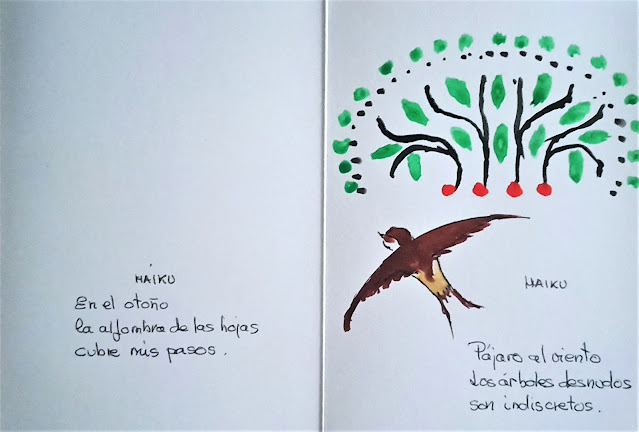 HAIKU
En el otoño
la alfombra de las hojas
cubre mis pasos.
HAIKU
Pájaro al viento
Los árboles desnudos
son indiscretos.